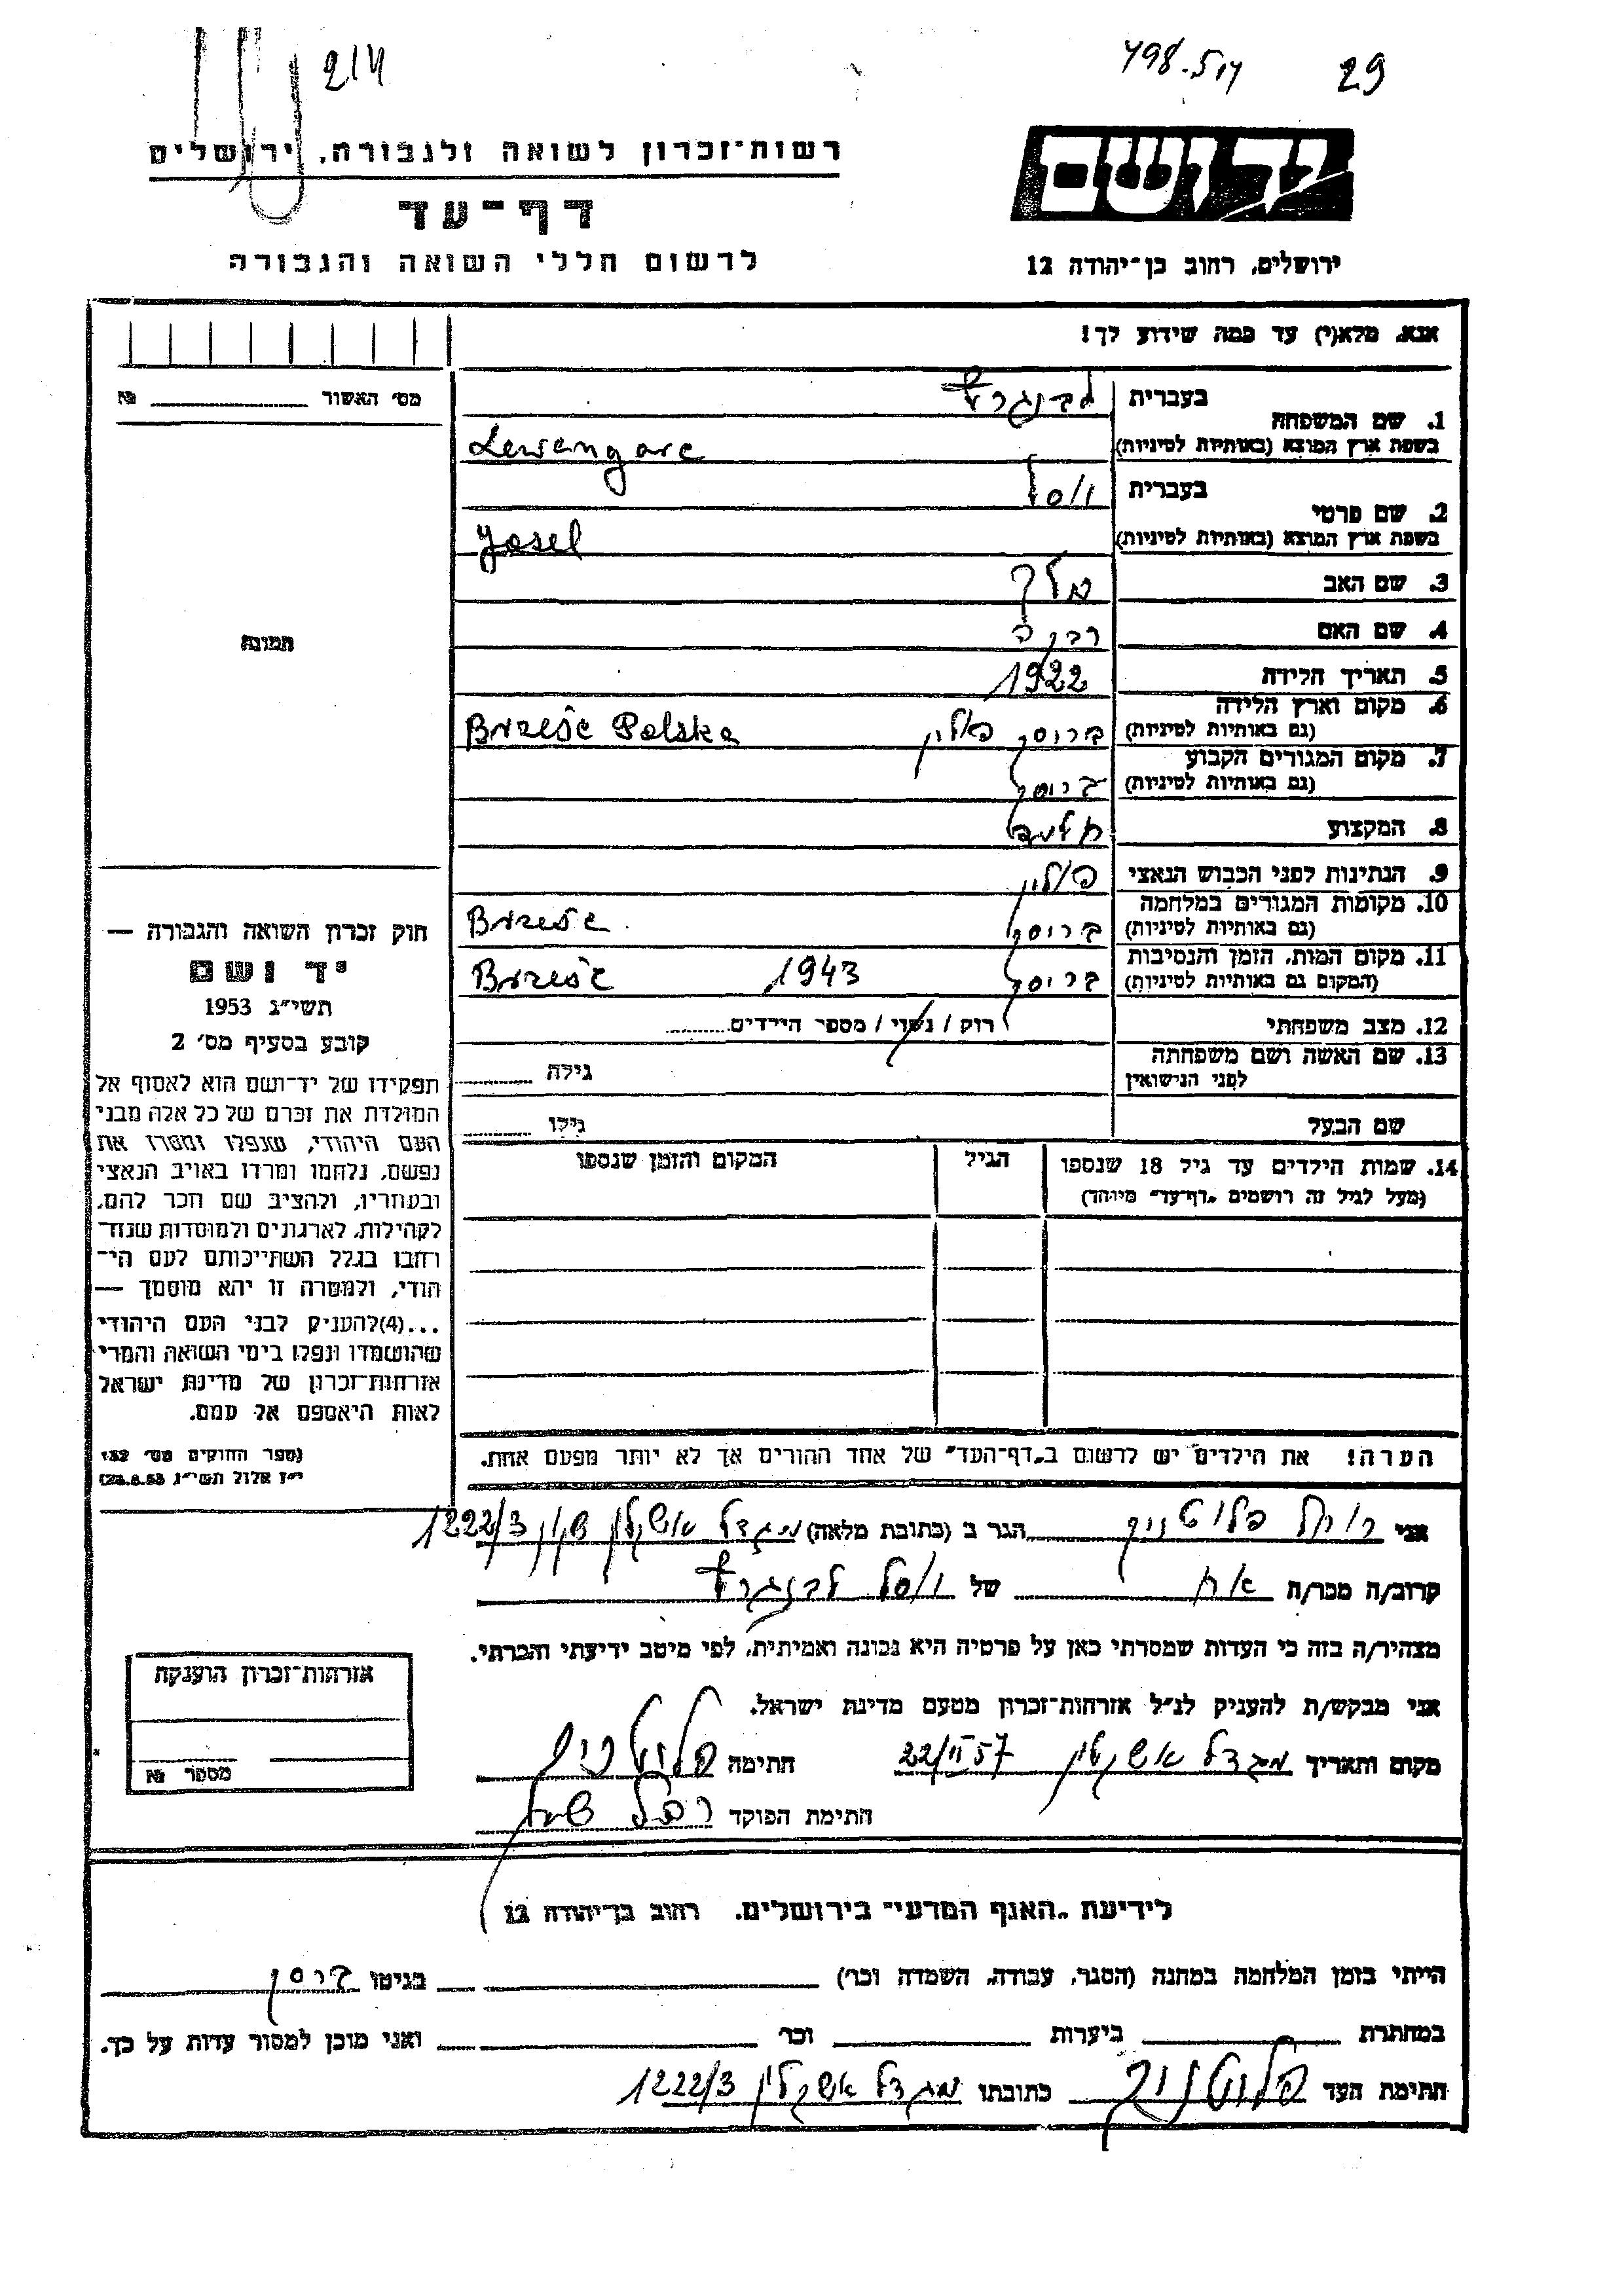 214
798.514 29
רשות־זכרון לשואה ולגבורה, ירושלים
דף־עד
לרשום חללי השואה והגבורה
יד ושם
ירושלים, רחוב בן־יהודה 12
אנא, מלא(י) עד כמה שידוע לך!
מס׳ האשור № 
1. שם המשפחה
בעברית
בשפת ארץ המוצא (באותיות לטיניות)
Lewengarc
2. שם פרטי
בעברית יוסל
בשפת ארץ המוצא (באותיות לטיניות)
Josel
3. שם האב מלך
4. שם האם רבקה
תמונה
5. תאריך הלידה 1922
6. מקום וארץ הלידה
(גם באותיות לטיניות) פולין Brześć Polska
7. מקום המגורים הקבוע
(גם באותיות לטיניות)
8. המקצוע
9. הנתינות לפני הכבוש הנאצי פולין
10. מקומות המגורים במלחמה
(גם באותיות לטיניות) Brześć
11. מקום המות, הזמן והנסיבות
(המקום גם באותיות לטיניות) 1943 Brześć
12. מצב משפחתי רוק / נשוי / מספר הילדים
13. שם האשה ושם משפחתה
לפני הנישואין גילה
שם הבעל גילו
14. שמות הילדים עד גיל 18 שנספו הגיל המקום והזמן שנספו
(מעל לגיל זה רושמים „דף־עד״ מיוחד)
הערה! את הילדים יש לרשום ב„דף־העד״ של אחד ההורים אך לא יותר מפעם אחת.
חוק זכרון השואה והגבורה —
יד ושם
תשי״ג 1953
קובע בסעיף מס׳ 2
תפקידו של יד־ושם הוא לאסוף אל
המולדת את זכרם של כל אלה מבני
העם היהודי, שנפלו ומסרו את
נפשם, נלחמו ומרדו באויב הנאצי
ובעוזריו, ולהציב שם וזכר להם,
לקהילות, לארגונים ולמוסדות שנח־
רבו בגלל השתייכותם לעם הי־
הודי, ולמטרה זו יהא מוסמך —
...(4)להעניק לבני העם היהודי
שהושמדו ונפלו בימי השואה והמרי
אזרחות־זכרון של מדינת ישראל
לאות היאספם אל עמם.
(ספר החוקים מס׳ 132,
י״ז אלול תשי״ג 28.8.53)
אני הגר ב (כתובת מלאה) מגדל אשקלון 1222/3
קרוב/ה מכר/ה אח של יוסל
מצהיר/ה בזה כי העדות שמסרתי כאן על פרטיה היא נכונה ואמיתית, לפי מיטב ידיעתי והכרתי.
אני מבקש/ת להעניק לנ״ל אזרחות־זכרון מטעם מדינת ישראל.
מקום ותאריך מגדל אשקלון 22/II 57 חתימה
חתימת הפוקד
אזרחות־זכרון הוענקה
מספר №
לידיעת „האגף המדעי״ בירושלים. רחוב בן־יהודה 12
הייתי בזמן המלחמה במחנה (הסגר, עבודה, השמדה וכו׳) בגיטו
במחתרת ביערות וכו׳ ואני מוכן למסור עדות על כך.
חתימת העד כתובתו מגדל אשקלון 1222/3